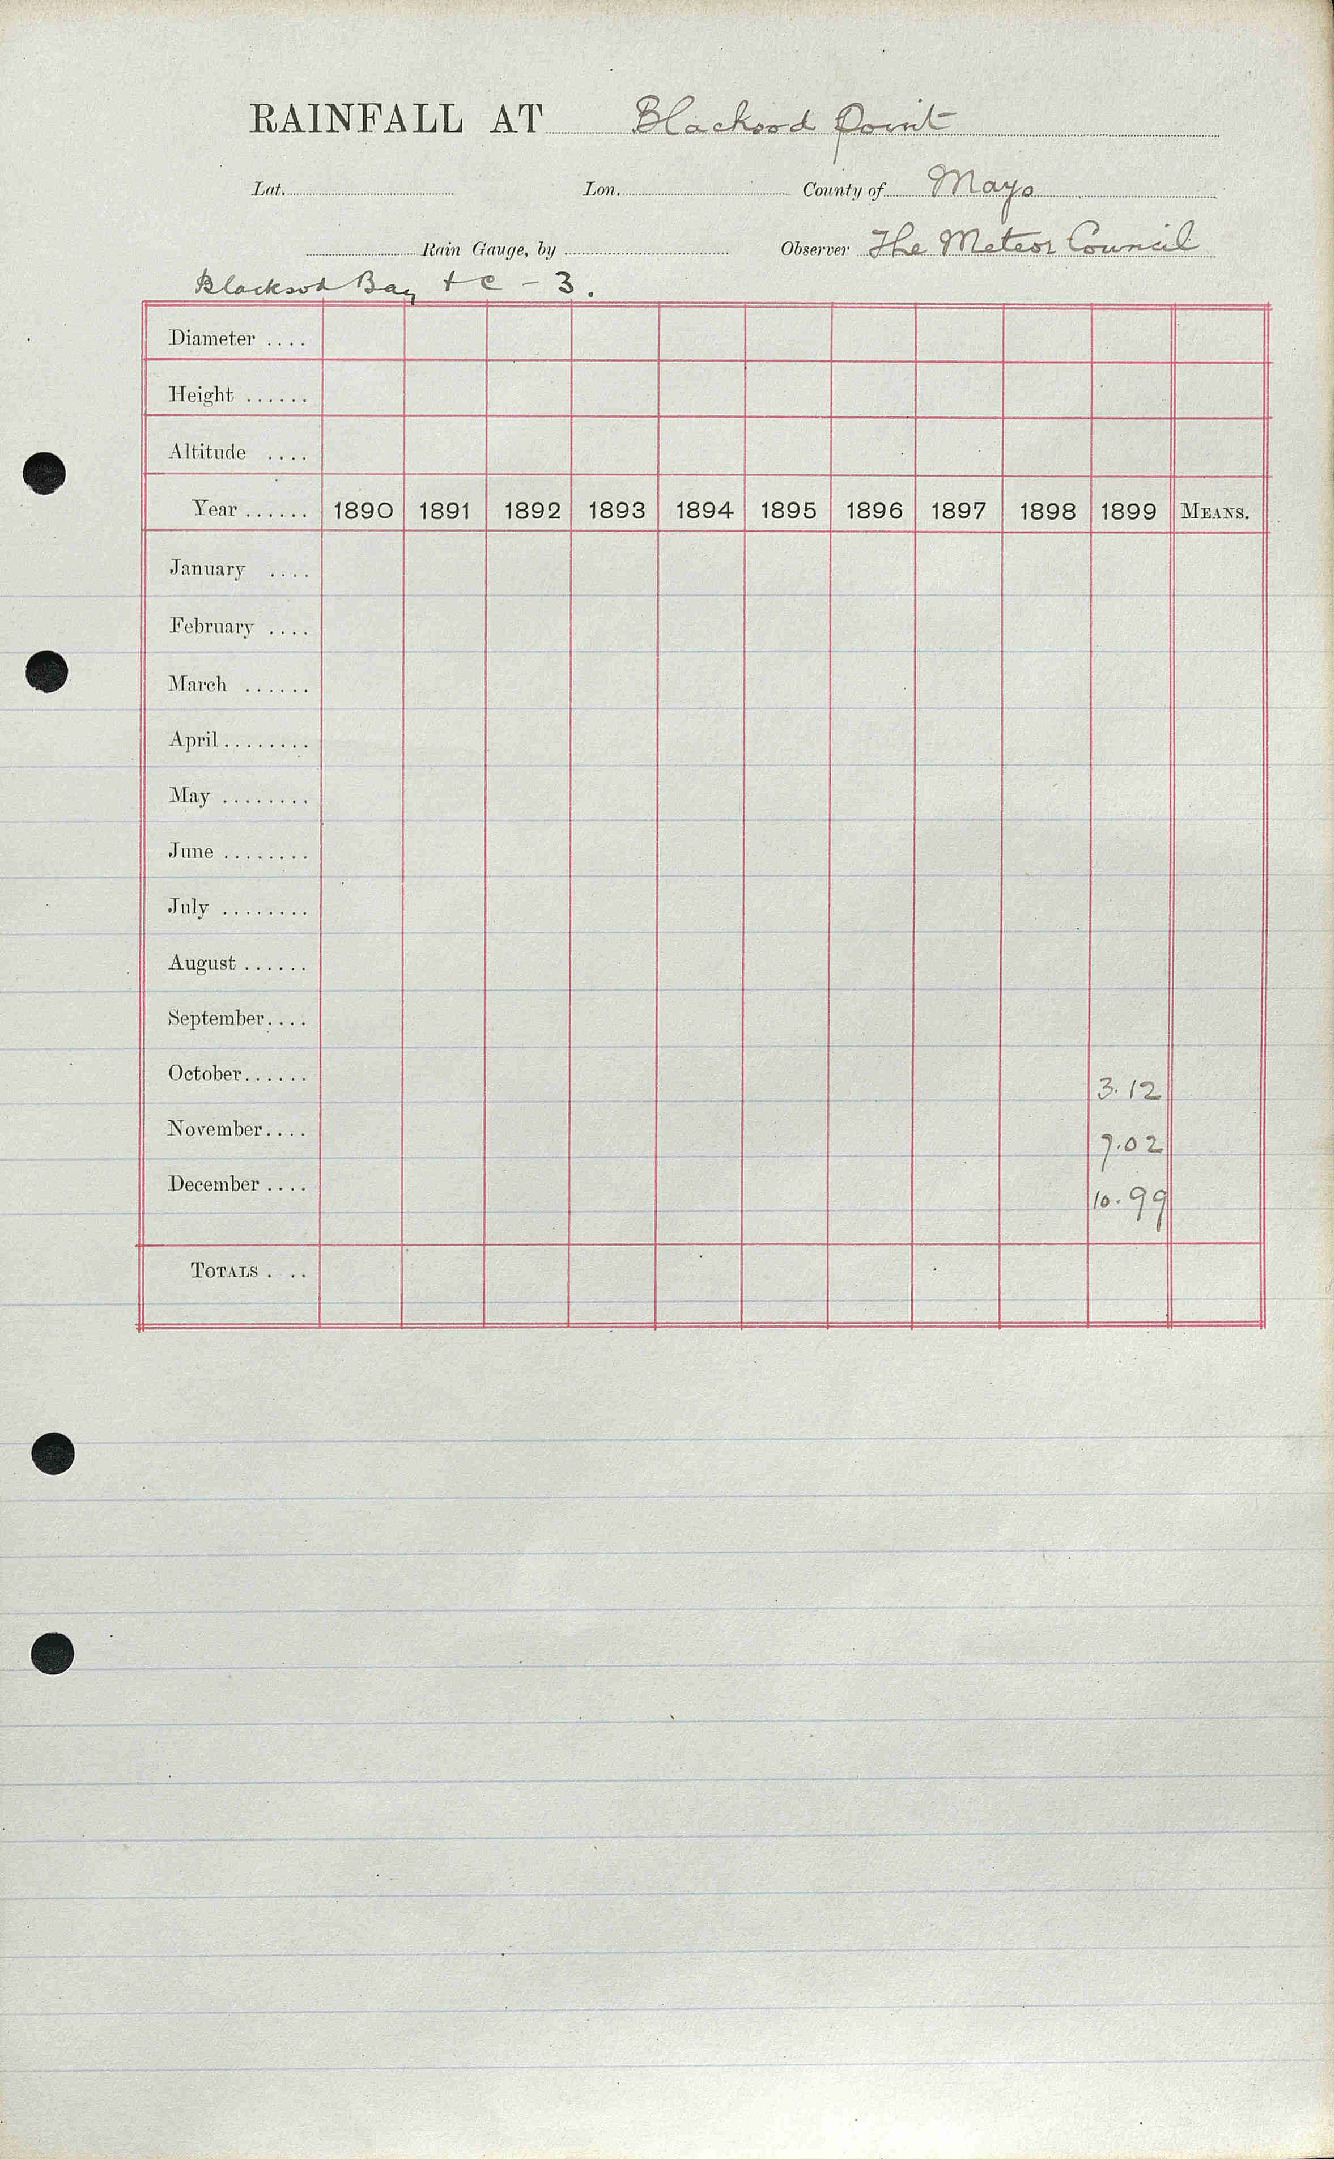 RAINFALL AT Blacksod Point
Lat. Lon. County of Mayo
Rain Gauge, by Observer The Meteor Council
Blacksod Bay + c - 3.
Diameter ....
Height ......
Altitude ....
Year ...... 1890 1891 1892 1893 1894 1895 1896 1897 1898 1899 MEANS.
January ....
February ....
March ......
April ........
May ........
June ........
July ........
August ......
September....
October...... 3.12
November.... 7.02
December .... 10.99
TOTALS . ..